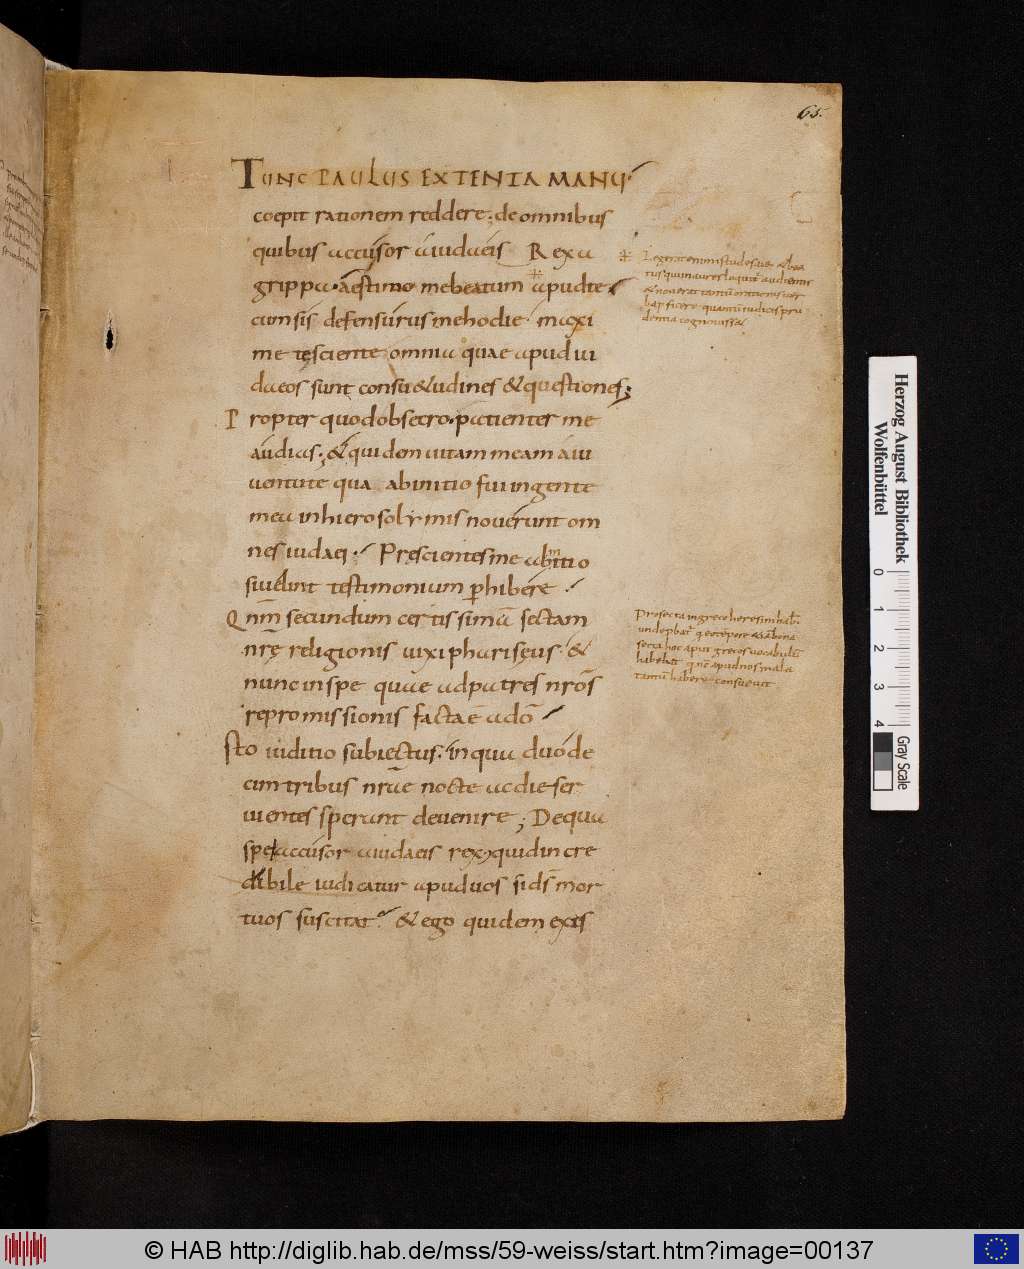 65.
TUNC PAULUS EXTENTA MANU
coepit rationem reddere; de omnibus
quibus accusor a iudaeis Rex a
grippa. aestimo me beatum apud te
cum sis defensurus me hodie. maxi
me te sciente omnia quae apud iui
daeos sunt consu&udines & questiones;
Propter quod obsecro. patienter me
audias; & quidem uitam meam a iu
uentute qua ab initio fui in gente
mea in hierosolymis nouerunt om
nes iudaei. Prescientes me ab initio
si uelint testimonium phibere
Qnm secundum certissimā sectam
nrē religionis uixi phariseus. &
nunc in spe quae ad patres nrōs
repromissionis facta ē a dō
sto iuditio subiectus. in qua duode
cim tribus nrae nocte ac die ser
uientes sperant deuenire; De qua
spe accusor a iudaeis rex; quid incre
dibile iudicatur apud uos si ds mor
tuos suscitat. & ego quidem exis
Legerat enim studesiue & bea
tus qui in aures loquit audientis
& nouerat tantū orationis uer
ba pficere quantū iudicis pru
dentia cognouiss&
Pro secta in greco heresim hab&
secta hoc aput grecos uocabulū
hab& qnē apud nos mala
tantū habere consueuit
Herzog August Bibliothek
Wolfenbüttel
0 1 2 3 4
Gray Scale
© HAB http://diglib.hab.de/mss/59-weiss/start.htm?image=00137